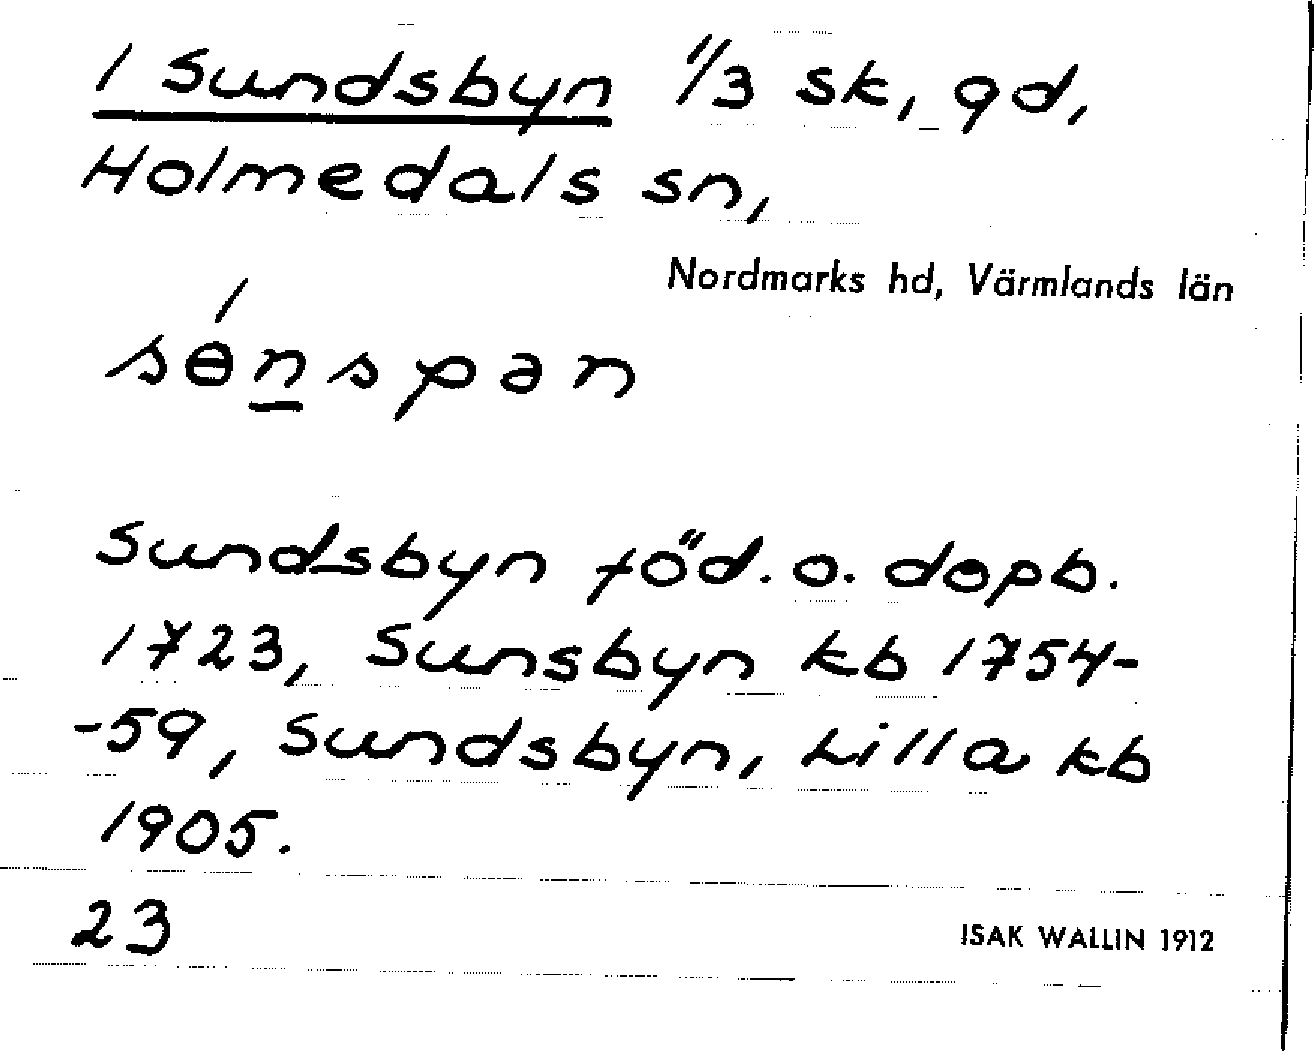 1 Sundsbyn 1/3 sk, gd,
Holmedals sn,
Nordmarks hd, Värmlands län
sɵ́n̲spən
Sundsbyn föd. o. dopb.
1723, Sunsbyn kb 1754-
-59, Sundsbyn, Lilla kb
1905.
23
ISAK WALLIN 1912